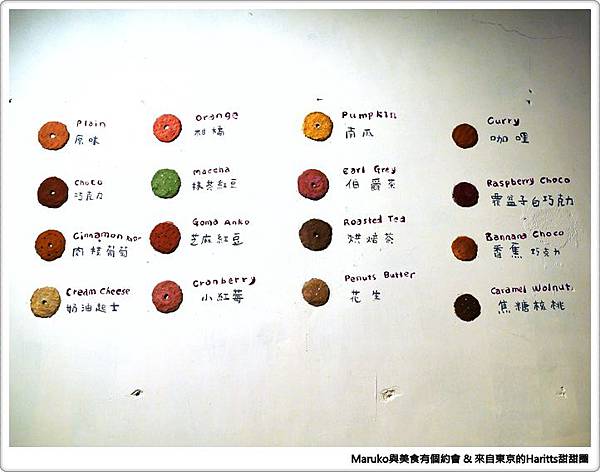 Plain
原味
Choco
巧克力
Cinnamon
肉桂葡萄
Cream Cheese
奶油起士
Orange
柑橘
maccha
抹茶紅豆
Goma Anko
芝麻紅豆
Cranberry
小紅莓
Pumpkin
南瓜
Earl Grey
伯爵茶
Roasted Tea
烘焙茶
Penuts Butter
花生
Curry
咖哩
Raspberry Choco
覆盆子白巧克力
Bannana Choco
香蕉巧克力
Caramel Walnut
焦糖核桃
Maruko與美食有個約會 & 來自東京的Haritts甜甜圈